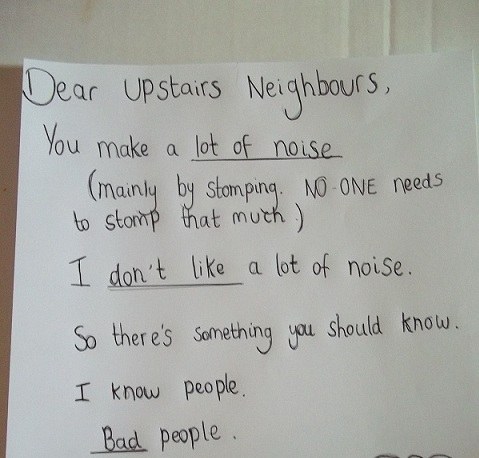 Dear Upstairs Neighbours,
You make a lot of noise
(mainly by stomping. NO ONE needs
to stomp that much.)
I don't like a lot of noise.
So there's something you should know.
I know people.
Bad people.